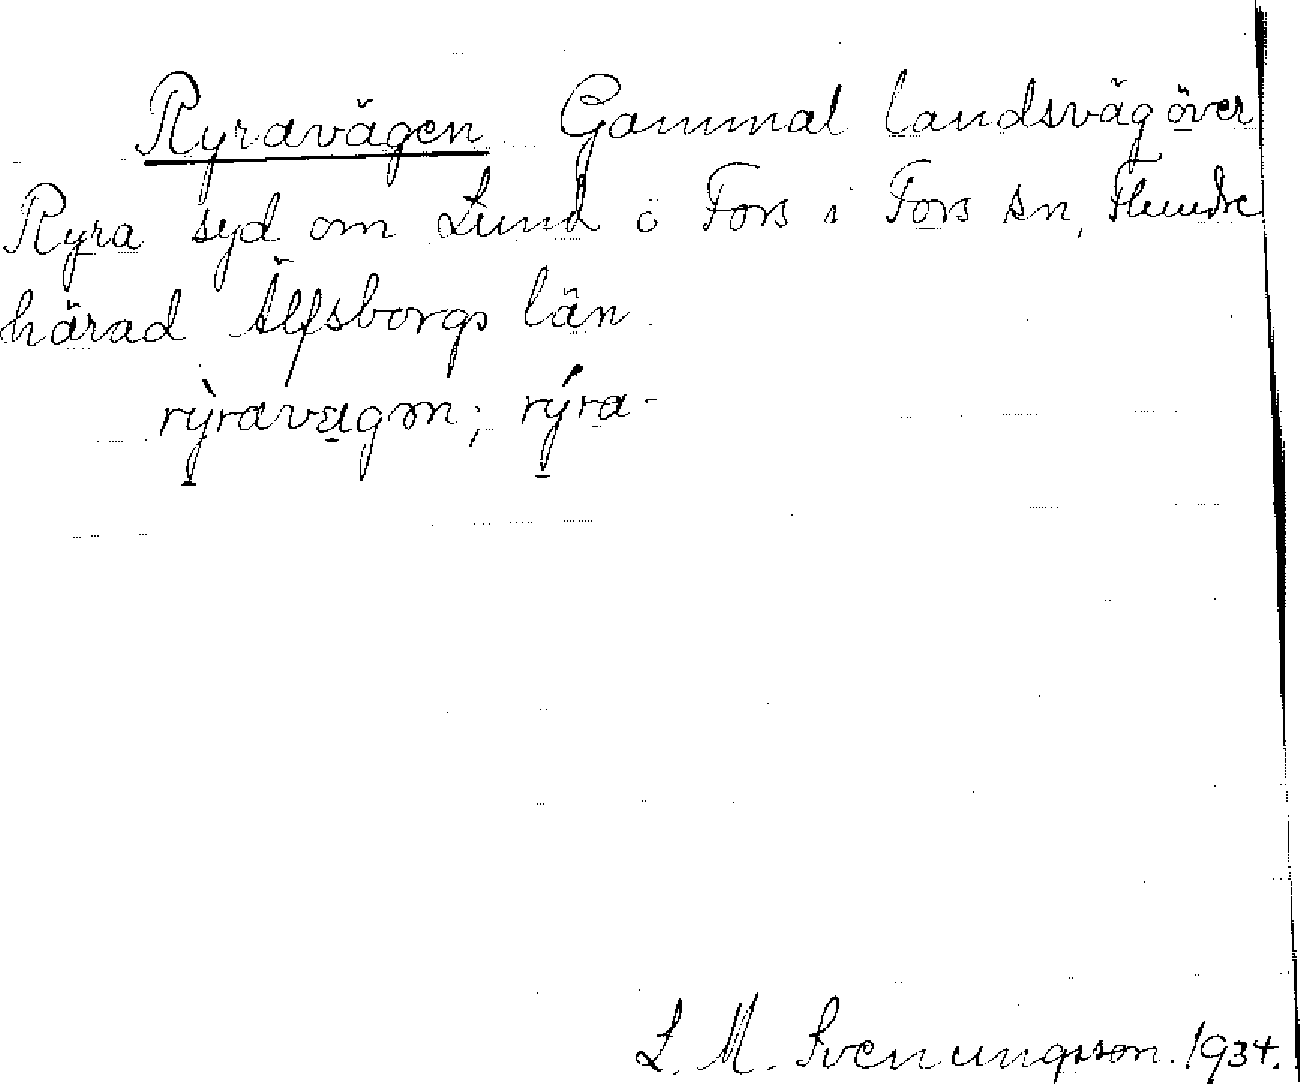 Ryravägen Gammal landsväg över
Ryra syd om Lund ö Fors i Fors sn, Flundre
härad Älfsborgs län.
rỳravägən; rýra-
L. M. Svenungsson. 1934.